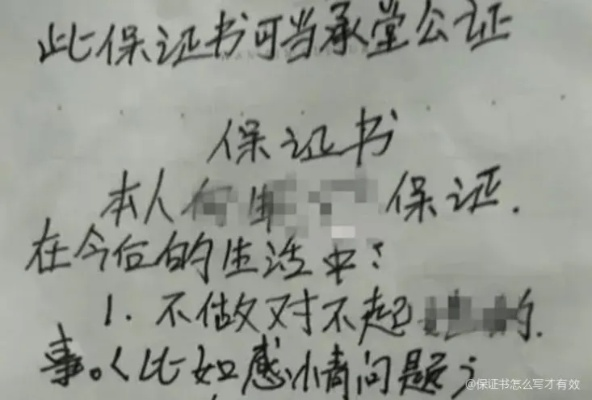 此保证书可当承堂公证
保证书
本人 保证.
在今后的生活中：
1. 不做对不起 的
事。（比如感情问题）
@保证书怎么写才有效